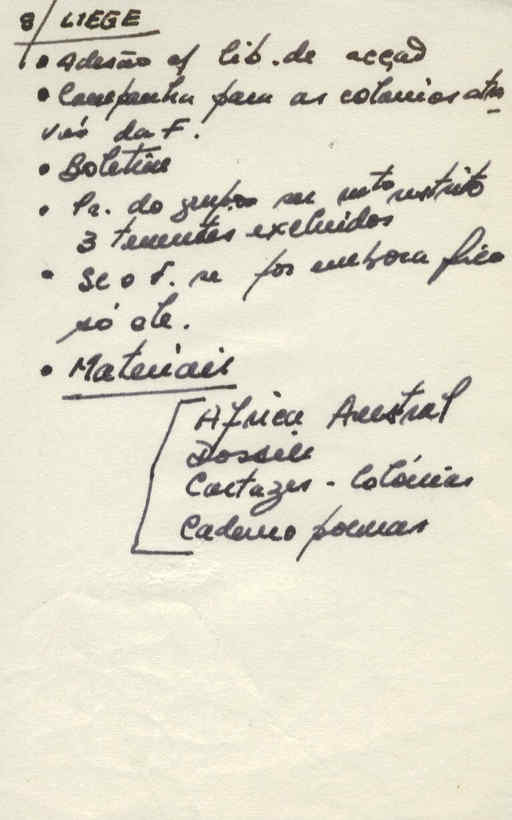 8/ LIEGE
• Adesão c/ lib. de acção
• Campanha para as colonias atra
vés da F.
• Boletim
• Pr. do grupo ser mto restrito
3 tementes excluidos
• Se o F. se for embora fica
só ele.
• Materiais
Africa Austral
Dossier
Cartazes - Colónias
Caderno poemas